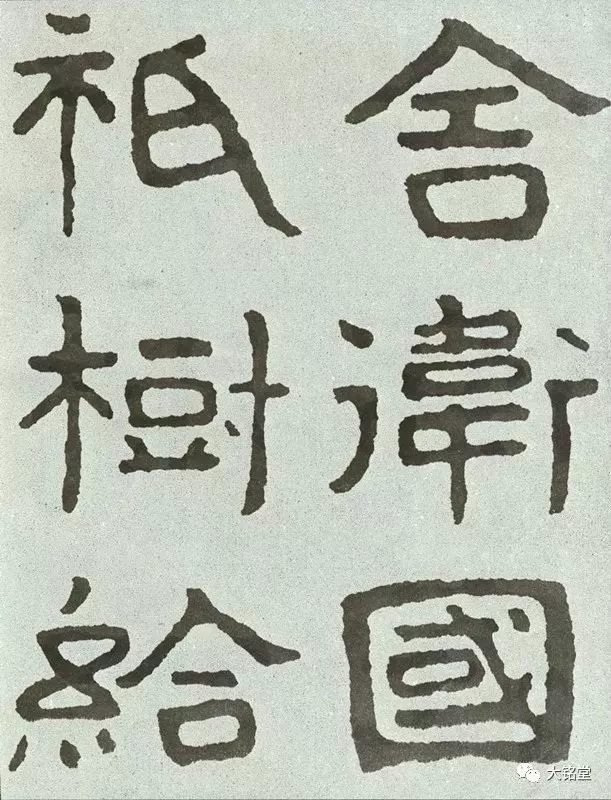 舍衛國
祇樹給
大铭堂